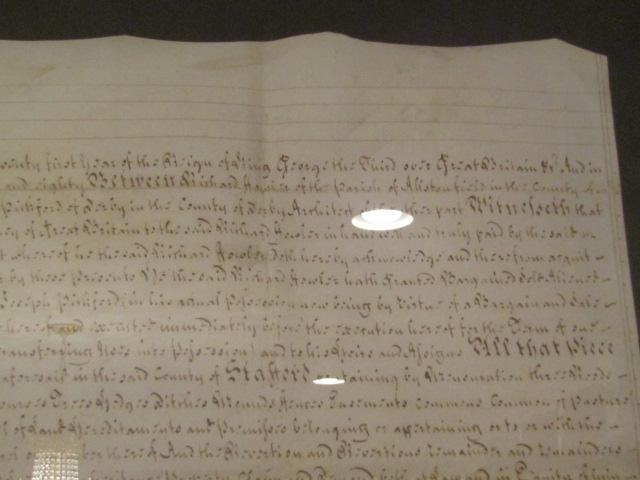 twenty first Year of the Reign of King George the Third over Great Britain &c And in
and eighty Between Richard of the parish of Allstonfield in the County of
Pickford of Derby in the County of Derby Architect of the other part Witnesseth that
of Great Britain to the said Richard in hand well and truly paid by the said
whereof he the said Richard Doth hereby acknowledge and therefrom acquit
by these presents He the said Richard hath Granted Bargained Sold Aliened
Joseph Pickford (in his actual possession now being by virtue of a Bargain and Sale
and executed immediately before the execution hereof for the Term of one
transferring Uses into Possession) and to his Heirs and Assigns All that piece
aforesaid in the said County of Stafford containing by Admeasuration three Roods
Trees Hedges Ditches Mounds Fences Easements Commons Common of Pasture
of Land Hereditaments and premises belonging or appertaining or to or with the
of them And the Reversion and Reversions remainder and remainders
and in Equity of